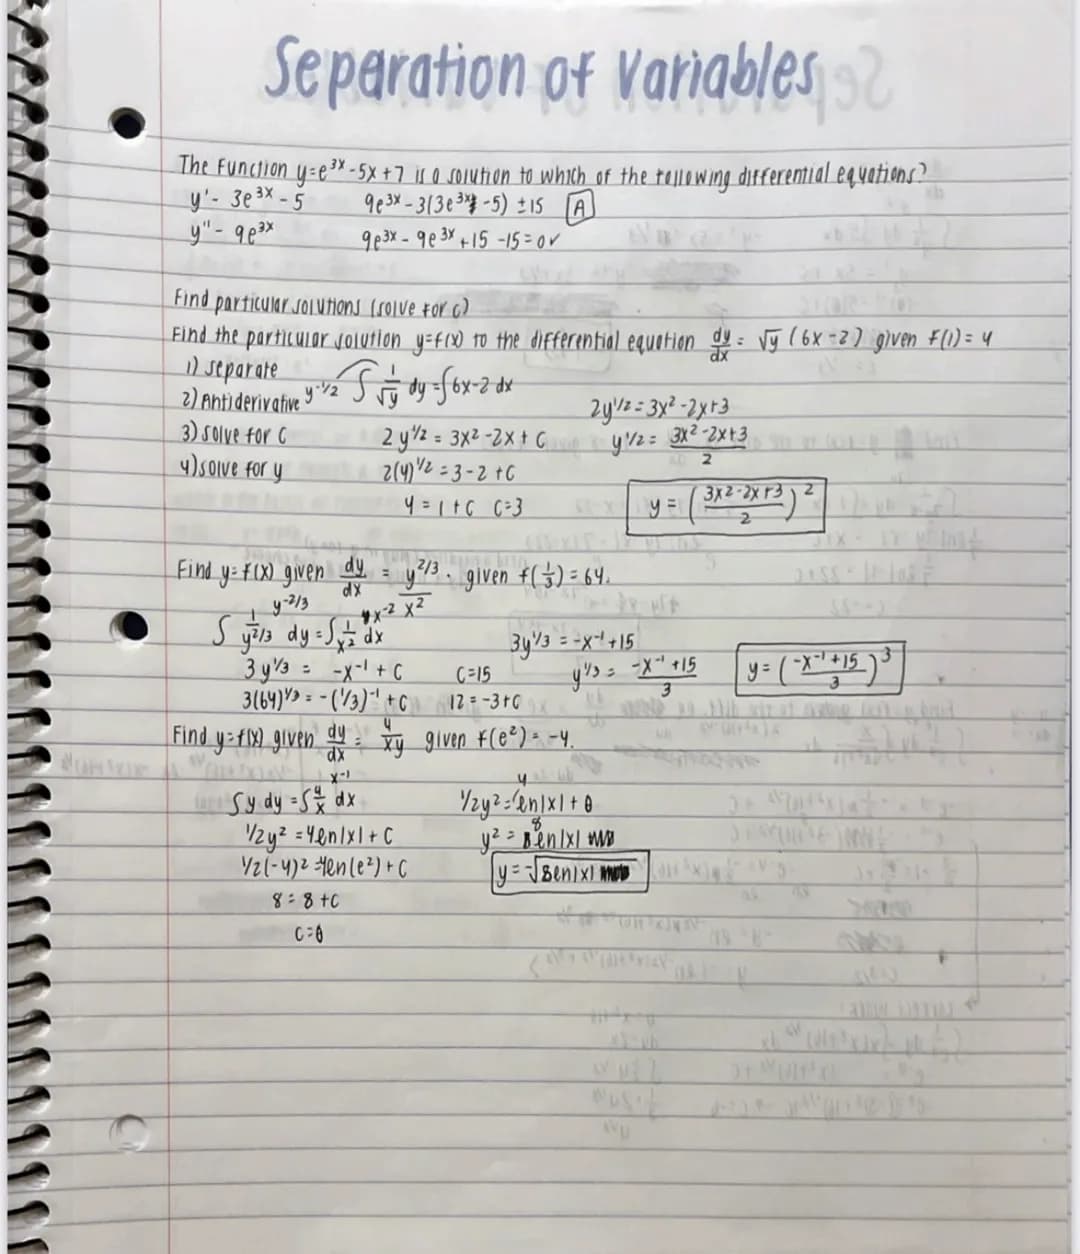 Separation of Variables
The Function y=e^3x -5x +7 is a solution to which of the following differential equations?
y'- 3e^3x - 5    9e^3x - 3(3e^3x -5) ±15    A
y"- 9e^3x    9e^3x - 9e^3x +15 -15=0✓
Find particular solutions (solve for c)
Find the particular solution y=f(x) to the differential equation dy/dx = √y (6x-2) given f(1)= 4
1) separate    y^-1/2    ∫ 1/√y dy =∫6x-2 dx
2) Antiderivative    2y^1/2 = 3x² -2x+3
3) solve for C    2 y^1/2 = 3x² -2x + C    y^1/2 = (3x²-2x+3)/2
4) solve for y    2(4)^1/2 = 3-2 +C
4 = 1+C    C=3    y = ((3x²-2x+3)/2)²
Find y=f(x) given dy/dx = y^2/3/x². given f(1/3) = 64.
y^-2/3    x^-2
∫ 1/y^2/3 dy =∫ 1/x² dx    3y^1/3 = -x^-1 +15
3y^1/3 = -x^-1 + C    C=15    y^1/3 = (-x^-1 +15)/3    y= ((-x^-1 +15)/3)³
3(64)^1/3 = -(1/3)^-1 +C    12 = -3+C
Find y=f(x) given dy/dx = 4/xy given f(e²)= -4.
x^-1    4
∫y dy =∫ 4/x dx    1/2y²= ln|x| + 0
1/2y² =4ln|x| + C    y² = 8ln|x|
1/2(-4)2 =4ln(e²)+C    y=-√8ln|x|
8 = 8 +C
C=0